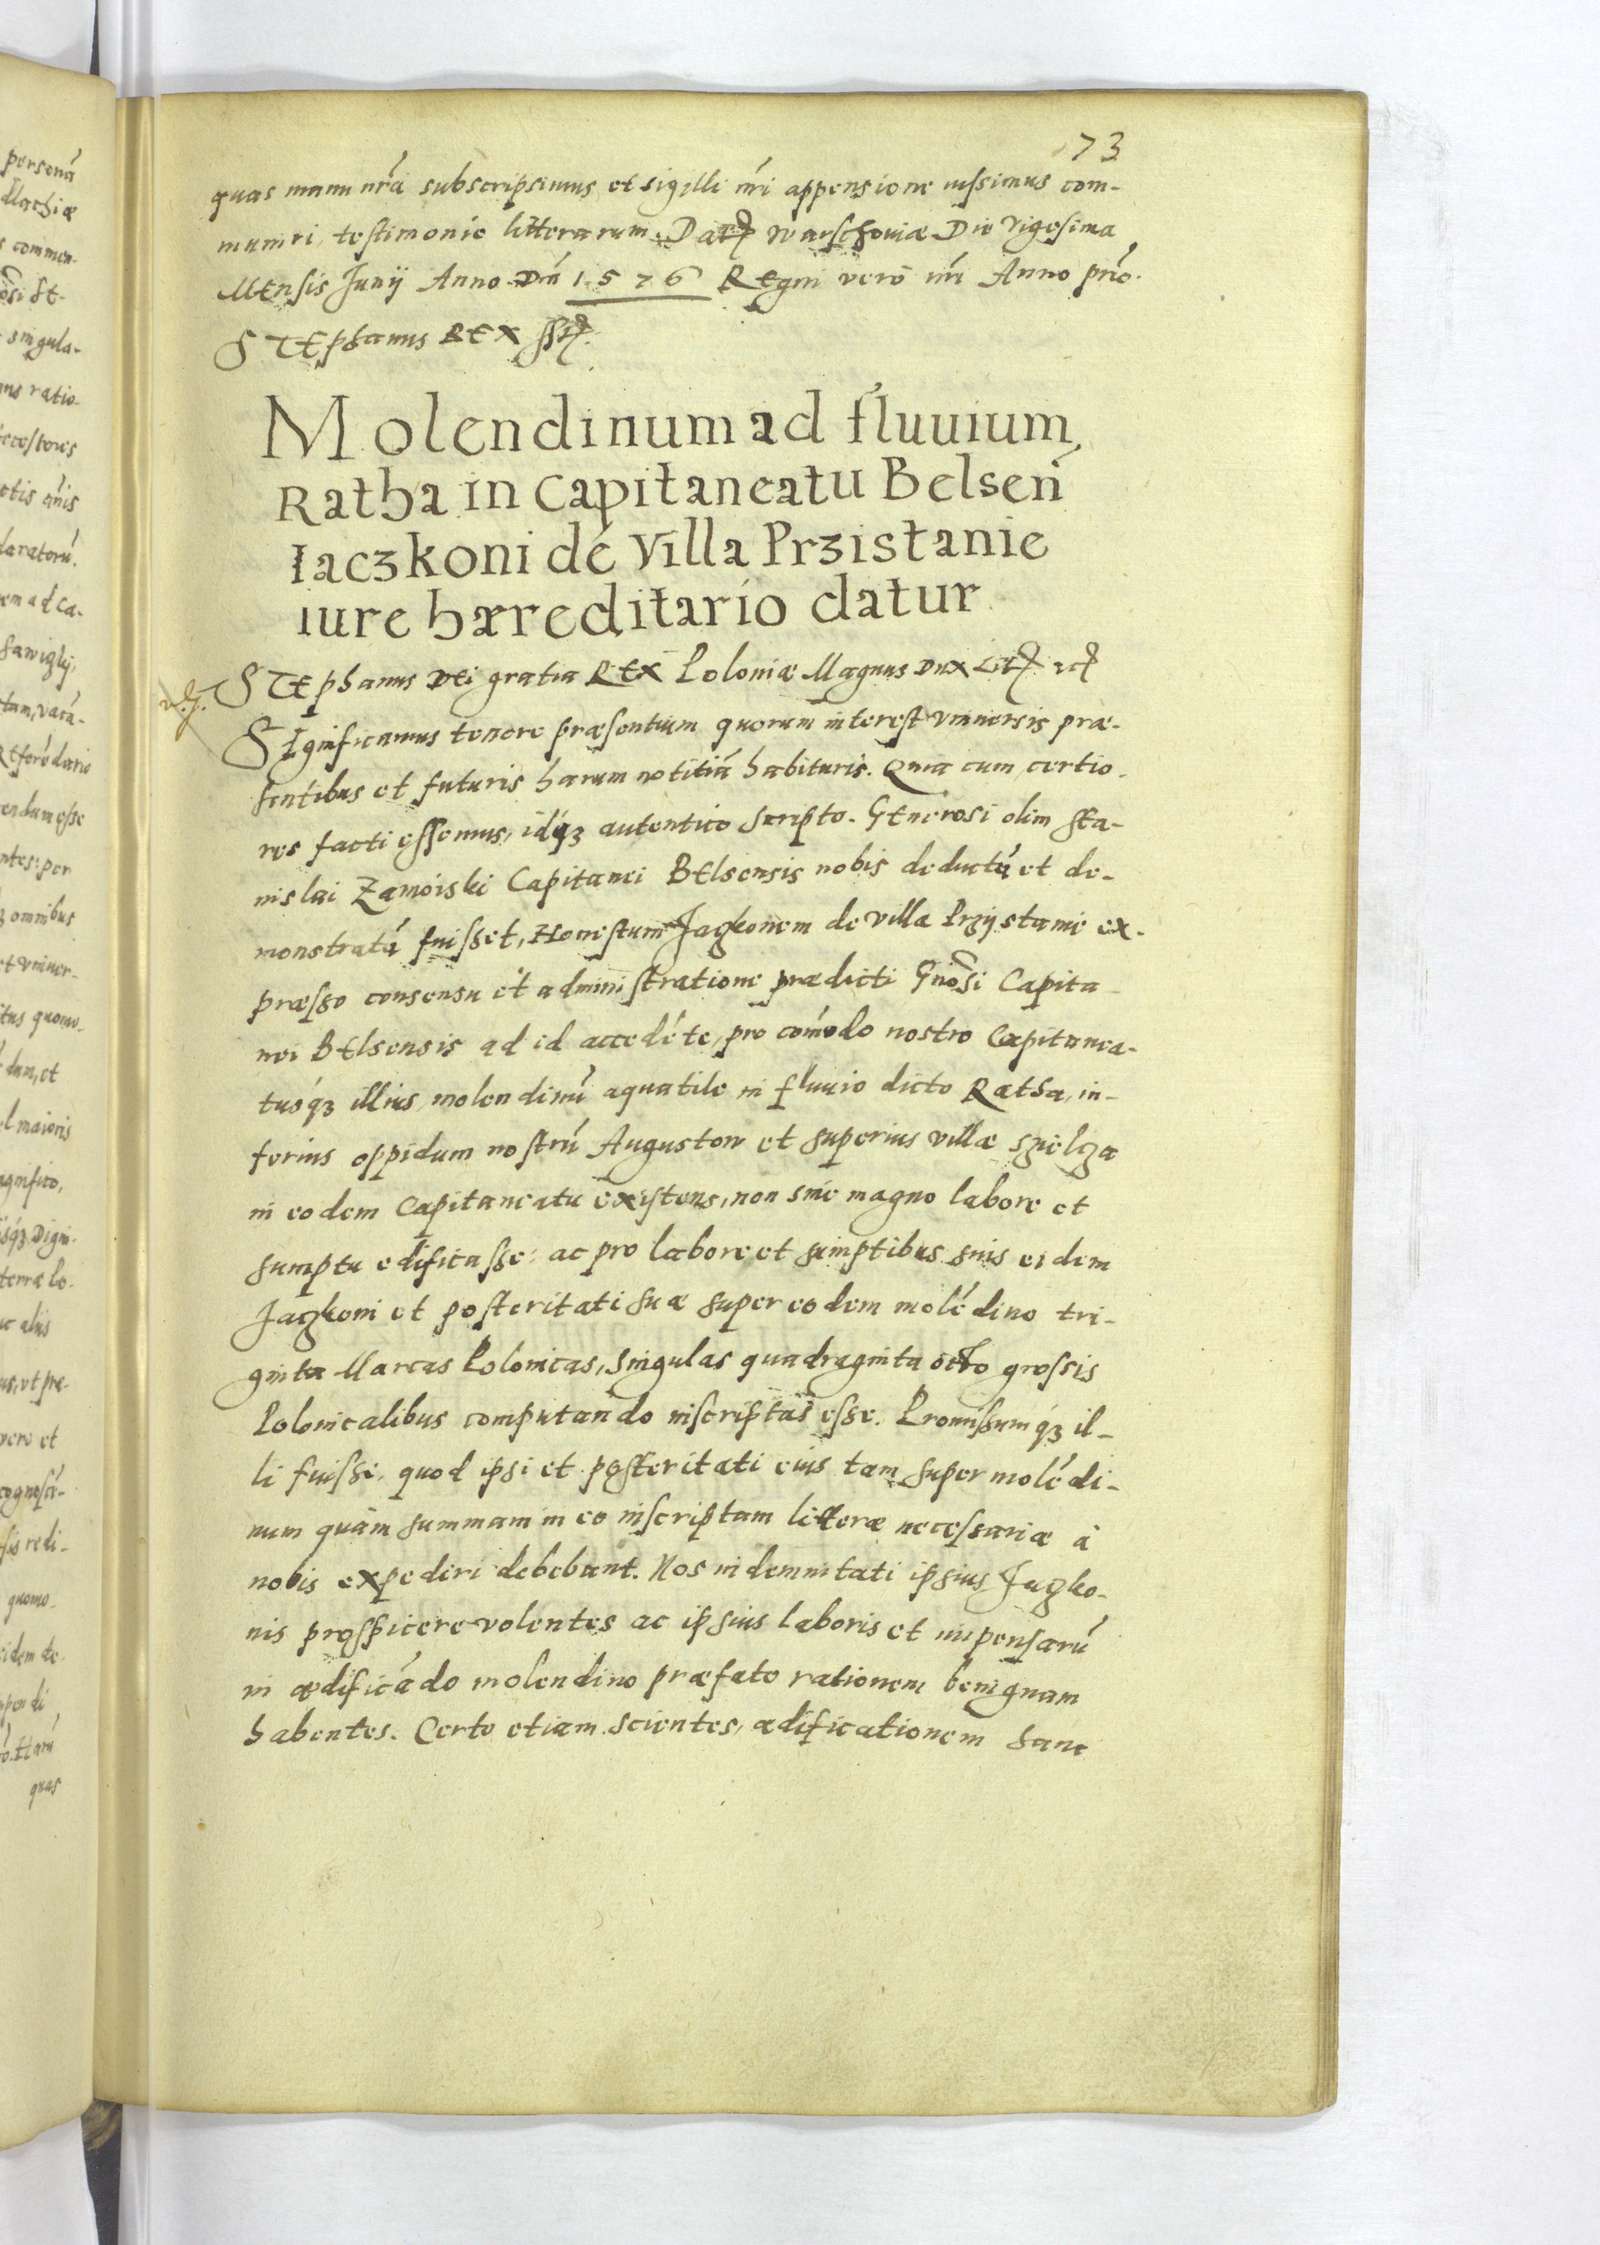 73
quas manu nrã subscripsimus et sigilli nri appensione iussimus com-
muniri, testimonio litterarum. Dat Warschoviæ Die Vigesima
Mensis Junij Anno Dni 1576 Regni verò nri Anno prio.
STEphanus REX sst
Molendinum ad fluuium
Ratha in Capitaneatu Belsen̄
Iaczkoni de Villa Przistanie
iure hæreditario datur
STEphanus DEi gratia REX Poloniæ Magnus Dux Lit etc
SIgnificamus tenore præsentium quorum interest vniuersis præ-
sentibus et futuris harum notitiã habituris. Quia cum certio-
res facti essemus, idqȝ autentico scripto Generosi olim Sta-
nislai Zamoiski Capitanei BElsensis nobis deductũ et de-
monstratũ fuisset, Honestum Jaczkonem de villa Przijstanie ex-
præsso consensu et administratione prædicti Gnosi Capita-
nei BElsensis ad id accedẽte, pro cõmodo nostro Capitanea-
tusqȝ illius molendinũ aquatile in fluuio dicto Ratha, in-
ferius oppidum nostrũ Augustow et superius villæ Szielcza
in eodem Capitaneatu existens, non sine magno labore et
sumptu edificasse: ac pro labore et sumptibus suis eidem
Jaczkoni et posteritati suæ super eodem molẽdino tri-
ginta Marcas Polonicas, singulas quadraginta octo grossis
Polonicalibus computando inscriptas esse. Promissumqȝ il-
li fuisse, quod ipsi et posteritati eius tam super molẽdi-
num quàm summam in eo inscriptam litteræ necessariæ à
nobis expediri debebant. Nos indemnitati ipsius Jaczko-
nis prospicere volentes ac ipsius laboris et impensarũ
in ædificãdo molendino præfato rationem benignam
habentes. Certo etiam scientes, ædificationem hanc